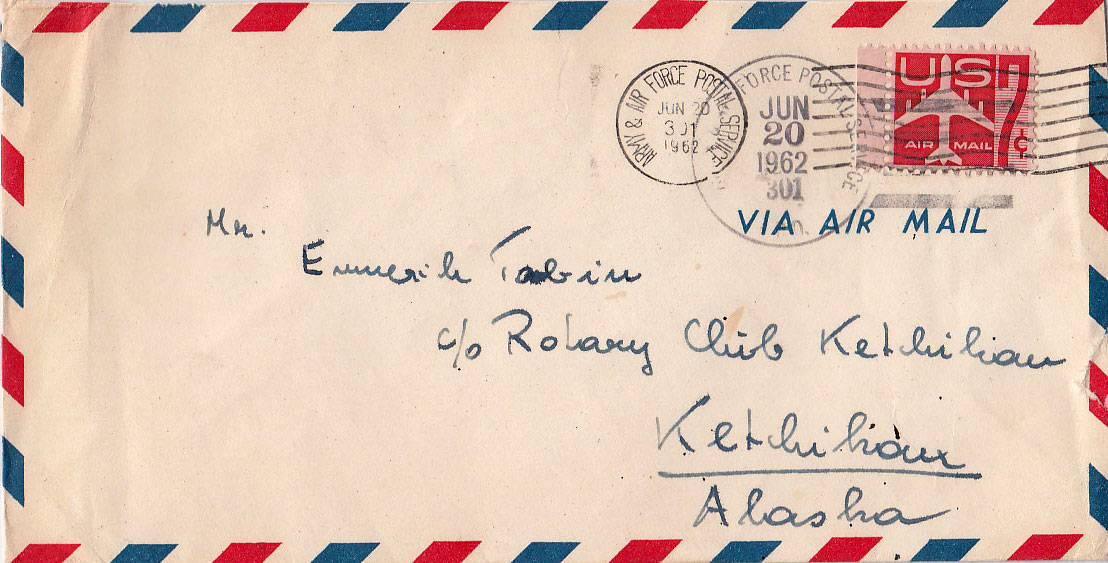 ARMY & AIR FORCE POSTAL SERVICE
JUN 20
301
1962
FORCE POSTAL SERVICE
JUN
20
1962
301
US 7¢
AIR MAIL
VIA AIR MAIL
Mr.
Emmerik Tobin
c/o Rotary Club Ketchikan
Ketchikan
Alaska